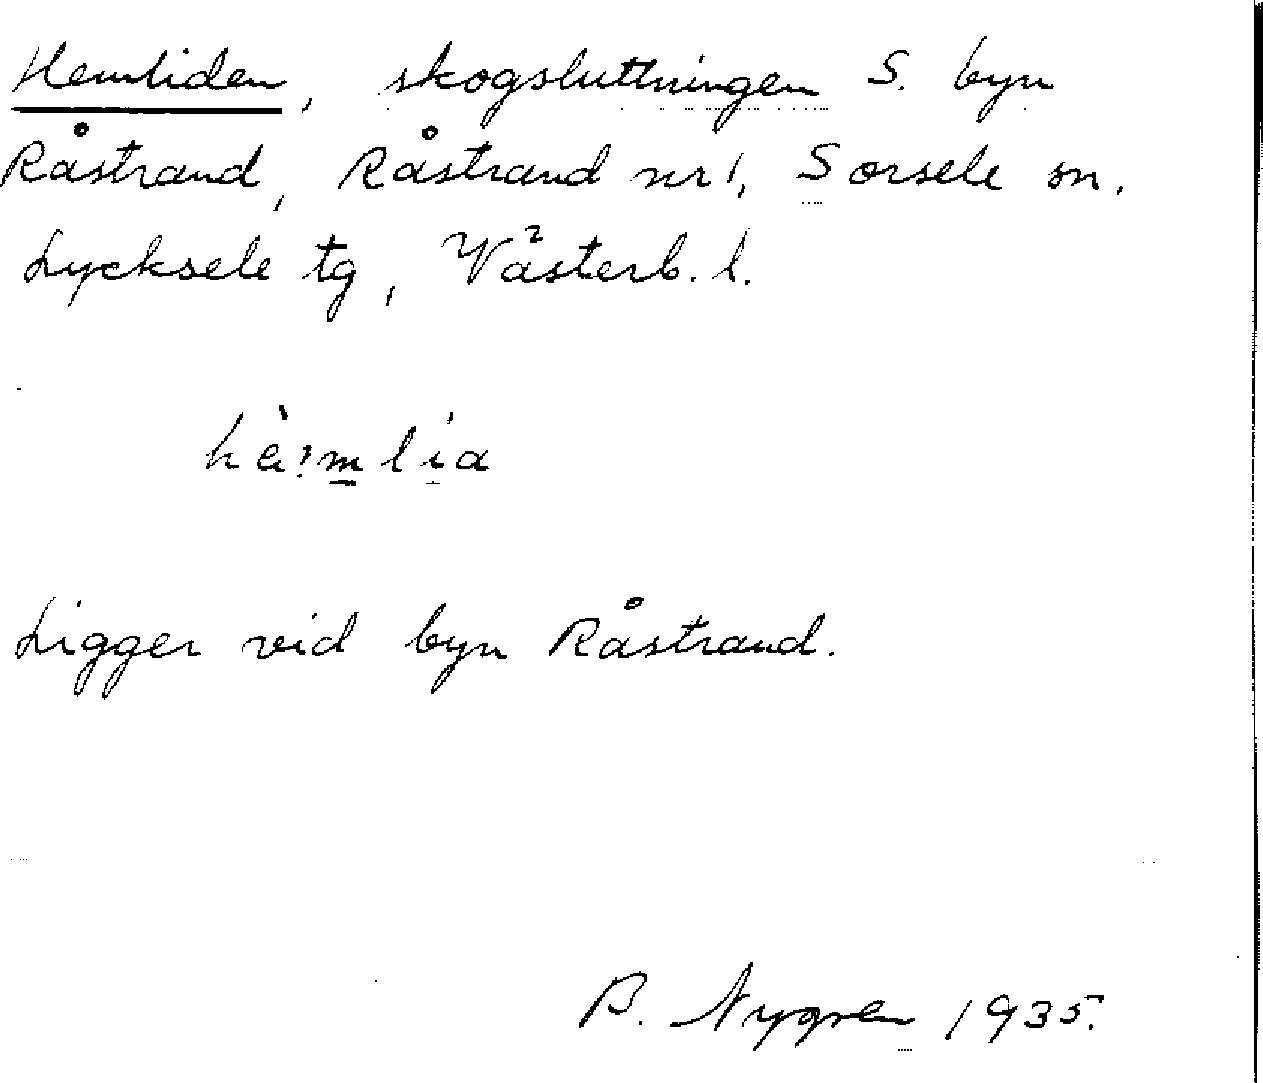 Hemliden, skogsluttningen S. byn
Råstrand, Råstrand nr 1, Sorsele sn.
Lycksele tg, Västerb. l.
hè:mlia
Ligger vid byn Råstrand.
B. Nygren 1935.